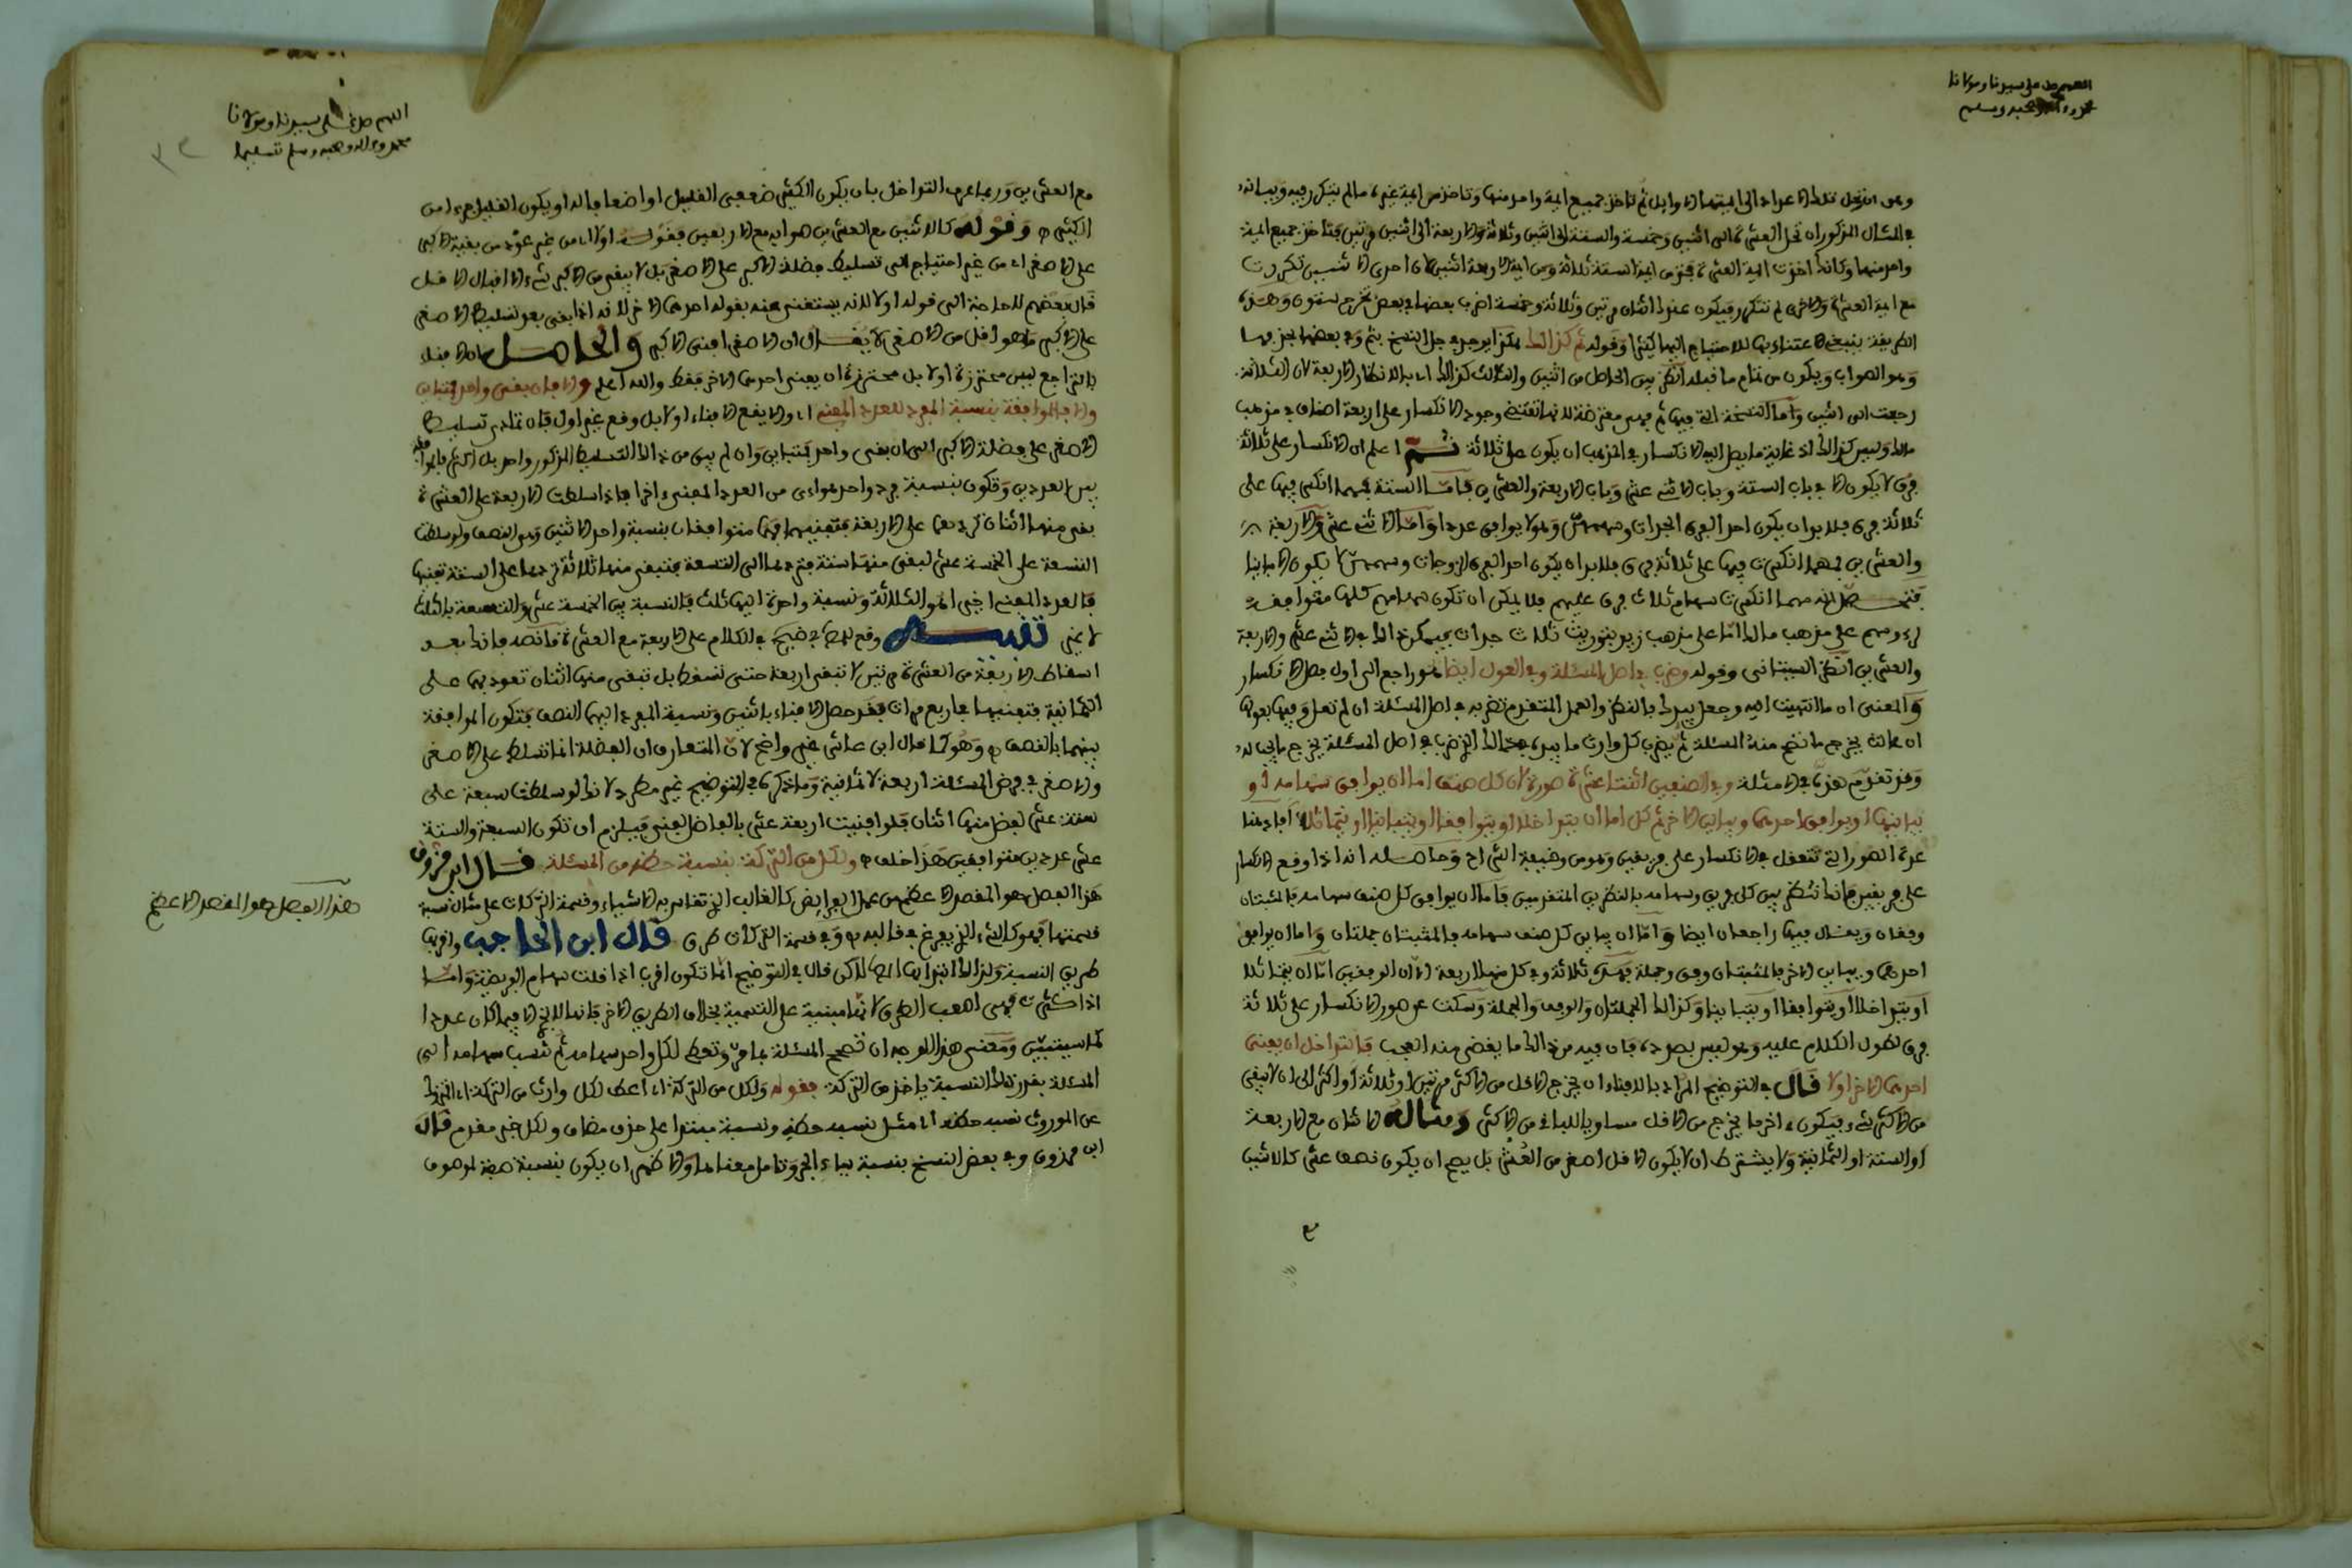 اللهم صل على سيدنا ومولانا
محمد وءاله وصحبه وسلم
وهو ان تحل تلك الاعداد الى ايمتها الاوايل ثم تاخذ جميع ايمة واحد منها وتاخذ من ايمة غيره ما لم يتكرر فيه وبيانه
في المثال المذكور ان تحل العشرة الى اثنين وخمسة والستة الى اثنين وثلاثة والاربعة الى اثنين مرتين فتاخذ جميع ايمة
واحد منها وكانك اخذت ايمة العشرة فتجد من ايمة الستة ثلاثة ومن ايمة الاربعة اثنين لان احدى الاثنين تكررت
مع ايمة العشرة والاخرى لم تتكرر فيكون عندك اثنان مرتين وثلاثة وخمسة اضرب بعضها في بعض تخرج ستون وهذه
الطريقة ينبغي الاعتناء بها للاحتياج اليها كثيرا وقوله ثم كذلك هكذا يوجد في جل النسخ بثم وفي بعضها بحذفها
وهو الصواب ويكون من تمام ما قبله انظر بين الحاصل من اثنين والثالث كذلك اي بالانظار الاربعة لان الثلاثة
رجعت الى اثنين واما النسخة التي فيها ثم فهي معترضة لانها تقتضي وجود الانكسار على اربعة اصناف في مذهب
مالك وليس كذلك اذ غاية ما يصل اليه الانكسار في المذهب ان يكون على ثلاثة ثم اعلم ان الانكسار على ثلاثة
فرق لا يكون الا في باب الستة وباب الاثني عشر وباب الاربعة والعشرين فاما الستة فمهما انكسر فيها على
ثلاثة فرق فلا بد ان يكون احد الفرق الجدات وسهمهن وهو لا يوافق عددا واما الاثني عشر والاربعة
والعشرين فمهما انكسرت فيها على ثلاثة فرق فلا بد ان يكون احد الفرق الزوجات وسهمهن لا يكون الا مباينا
فتحصل انه مهما انكسرت سهام ثلاث فرق عليهم فلا يمكن ان تكون سهامهم كلها متوافقة
لرءوسهم على مذهب مالك اما على مذهب زيد بتوريث ثلاث جدات فيمكن ذلك في الاثني عشر والاربعة
والعشرين انظر البستاني وقوله وضرب في اصل المسئلة وفي العول ايضا هو راجع الى اول فصل الانكسار
والمعنى ان ما انتهيت اليه وحصل بيدك بالنظر والعمل المتقدم تضربه في اصل المسئلة ان لم تعل وفيها بعولها
ان عالت يخرج ما تصح منه المسئلة ثم يضرب كل وارث ما بيده في ذلك الذي ضرب في اصل المسئلة يخرج ما يجب له
وقد تقدم هذا في الامثلة وفي الصنفين اثنتا عشرة صورة لان كل صنف اما ان يوافق سهامه او
يباينها او يوافق احدهما ويباين الاخر ثم كل اما ان يتداخلا او يتوافقا او يتباينا او يتماثلا افاد هنا
عدة الصور التي تتعقل في الانكسار على فريقين وهو من وظيفة الشراح وحاصله انه اذا وقع الانكسار
على فريقين فانك تنظر بين كل فريق وسهامه بالنظرين المتقدمين فاما ان يوافق كل صنف سهامه فالمثبتان
وفقان ويقال فيها راجعان ايضا واما ان يباين كل صنف سهامه فالمثبتان جملتان واما ان يوافق
احدهما ويباين الاخر فالمثبتان وفق وجملة فهذه ثلاثة وفي كل منها اربعة لان الوفقين اما ان يتماثلا
او يتداخلا او يتوافقا او يتباينا وكذلك الجملتان والوفق والجملة وسكت عن صور الانكسار على ثلاثة
فرق لطول الكلام عليه وهو ليس بصدده فان فيه من ذلك ما يفضي منه العجب فالتداخل ان يفني
احدهما الاخر اولا قال في التوضيح المراد بالافناء ان يخرج الاقل من الاكثر مرتين او ثلاثة او اكثر الى ان لا يبقى
من الاكثر شيء فيكون ءاخر ما يخرج من الاقل مساويا للباقي من الاكثر ومثاله الاثنان مع الاربعة
او الستة او الثمانية ولا يشترط ان لا يكون الاقل اصغر من العشر بل يصح ان يكون نصف عشر كالاثنين
اللهم صل على سيدنا ومولانا
محمد وءاله وصحبه وسلم تسليما
مع العشرين وربما عرف التداخل بان يكون الكثير ضعفي القليل او اضعافا له او يكون القليل جزءا من
الكثير وقوله كالاثنين مع العشرين هو ايه مع الاربعين فقوله اولا اي من غير عود من بقية الاكبر
على الاصغر اي من غير احتياج الى تسليط فضلة الاكبر على الاصغر بل لا يبقى من الاكبر شيء الا
قال بعضهم لا حاجة الى قوله اولا لانه يستغنى عنه بقوله احدهما الاخر لانه اذا بقي بعد تسليط الاصغر
على الاكبر ما هو اقل من الاصغر لا يقال ان الاصغر افنى الاكبر والحاصل ان الافناء
بالتراجع ليس محترزه اولا بل محترزه ان يفني احدهما الاخر فقط والله اعلم والا فان بقي واحد فمتباين
والا فالموافقة بنسبة المفرد للعدد المفني اي والا يقع الافناء اولا بل وقع غير اول فان تمادى تسليط
الاصغر على فضلة الاكبر الى ان بقي واحد فمتباين وان لم يبق من ذلك التسليط المذكور واحد بل اكثر فالموافقة
بين العددين وتكون بنسبة فرد واحد هوائي من العدد المفني ءاخرا فاذا سلطت الاربعة على العشرة
بقي منها اثنان تردهما على الاربعة فتفنيها فهما متوافقان بنسبة واحد الاثنين وهو النصف ولو سلطت
التسعة على الخمسة عشر لبقي منها ستة فتردها الى التسعة فتبقى منها ثلاثة تردها على الستة تفنيها
فالعدد المفني اخيرا هو الثلاثة ونسبة واحد اليها ثلث فالنسبة بين الخمسة عشر والتسعة بالثلث
لا غير تنبيه وقع للمص في ضيح في الكلام على الاربعة مع العشرة ما نصه فانك بعد
اسقاط الاربعة من العشرة مرتين لا تبقى اربعة حتى تسقط بل تبقى منها اثنان تعود بها على
الثمانية فتفنيها في اربع مرات فقد حصل الافناء باثنين ونسبة المفرد اليها النصف فتكون الموافقة
بينهما بالنصف وهو كما قال ابن عاشر غير واضح لان المتعارف ان الفضلة انما تسلط على الاصغر
والاصغر في فرض المسئلة اربعة لا ثمانية وما ذكره في التوضيح غير مطرد لانك لو سلطت سبعة على
ستة عشر لفضل منها اثنان فلو افنيت اربعة عشر بالفاضل لفني فيلزم ان تكون السبعة والستة
عشر عددين متوافقين هذا خلف ولكل من التركة بنسبة حظه من المسئلة قال ابن مرزوق
هذا الفصل هو المقصد الاعظم من عمل الفرايض كالقالب الذي تقاس به الاشياء وقسمة التركات على مثال نسبة
قسمتها فهو كالشيء الذي يفرغ في قالبه وفي قسمة التركات طرق قال ابن الحاجب واقربها
طريق النسبة ولذلك ابتدا بها المص لكن قال في التوضيح انما تكون اقرب اذا قلت سهام الفريضة واما
اذا كثرت فهي اصعب الطرق لانها مبنية على التسمية بخلاف الطريق الاخر فانها للانجم الا فيما كان عددا
كما سيتبين ومعنى هذا الوجه ان تصحح المسئلة بما مر وتعطي لكل واحد سهامه ثم تنسب سهامه الى
المسئلة بقدر تلك النسبة ياخذ من التركة فقوله ولكل من التركة اي اعط لكل وارث من التركة اي المتروك
عن الموروث نسبة حظه اي مثل نسبة حظه ونسبة مبتدا على حذف مضاف ولكل خبر مقدم قال
ابن مرزوق وفي بعض النسخ بنسبة بباء الجر وتامل معناها والاظهر ان يكون بنسبة صفة لموصوف
هذا الفصل هو المقصد الاعظم